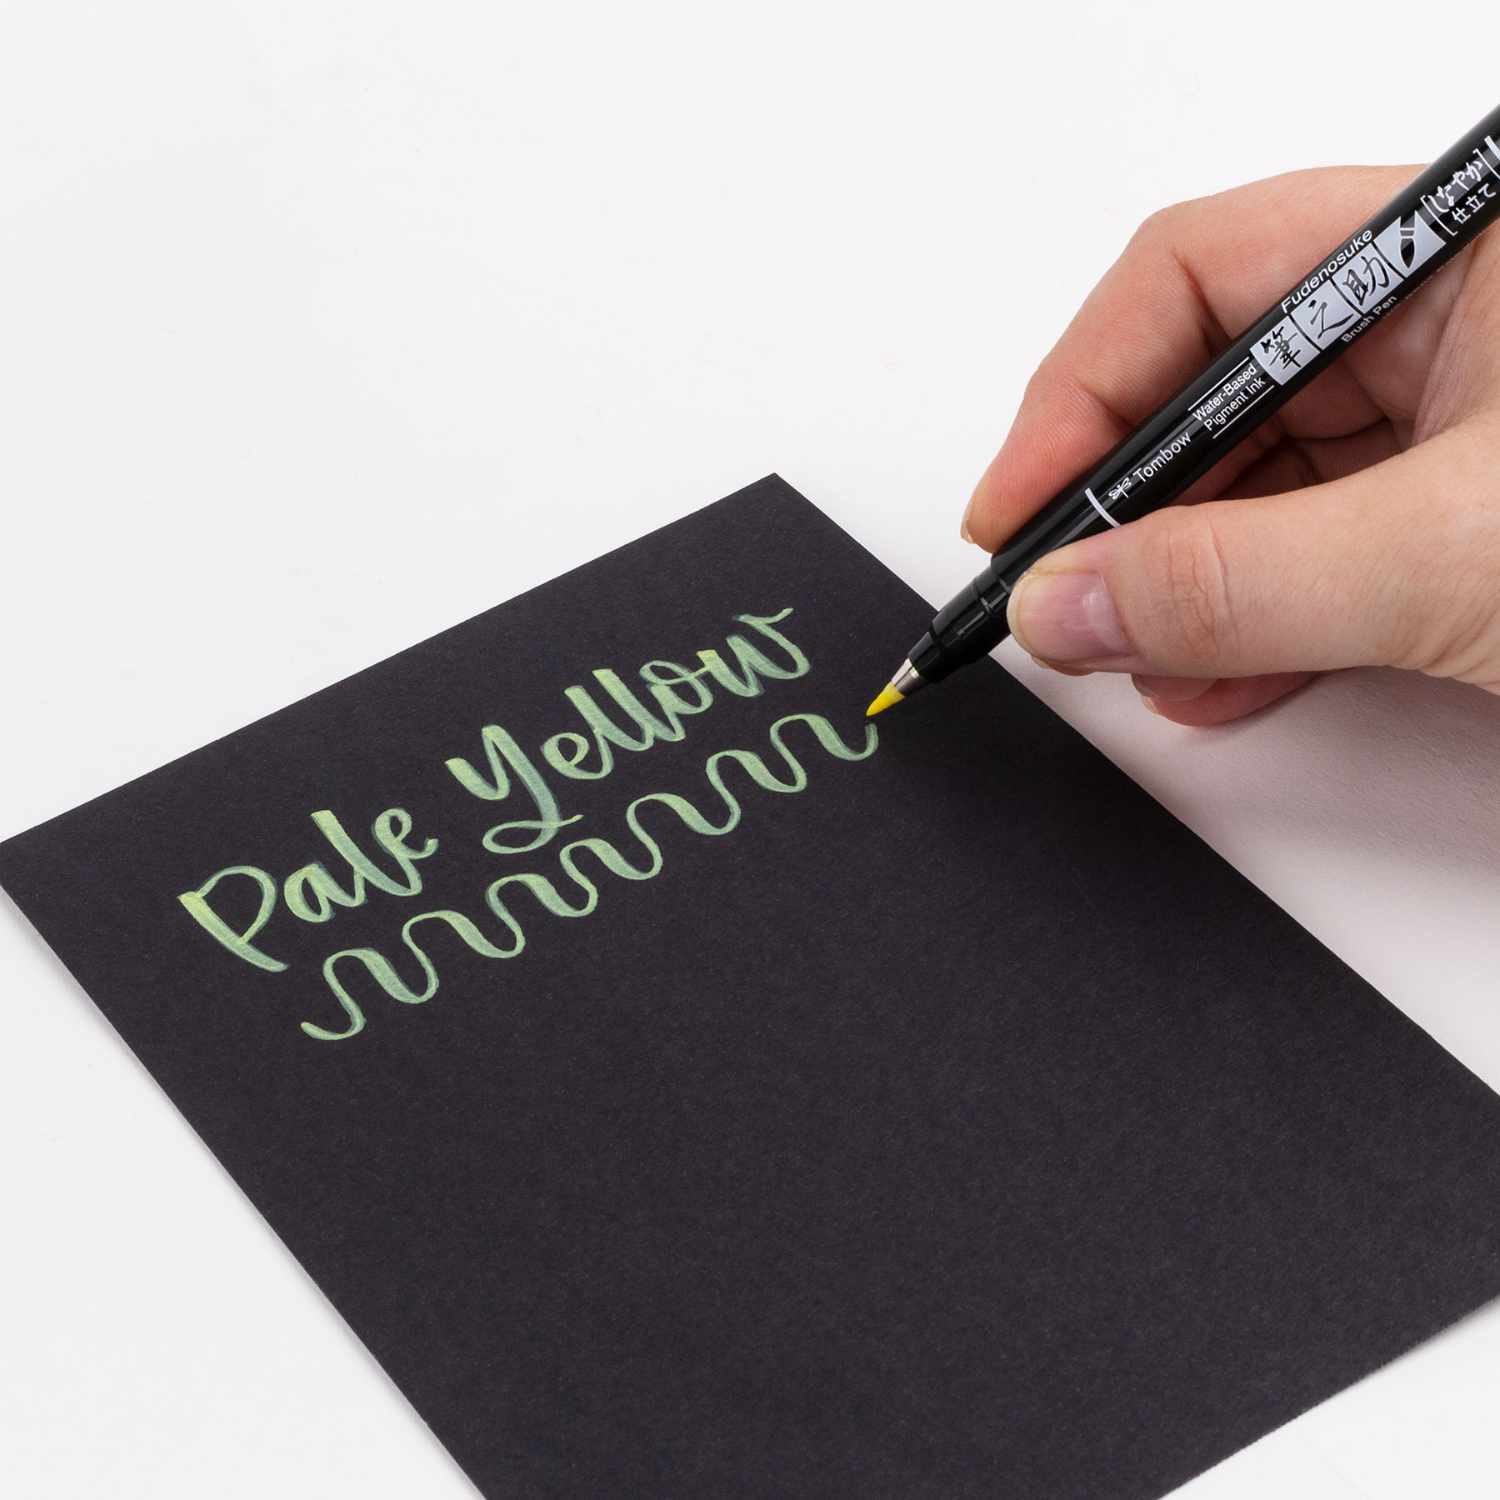 Pale Yellow
Tombow
Water-Based
Pigment Ink
Fudenosuke
筆之助
Brush Pen
しなやか
仕立て